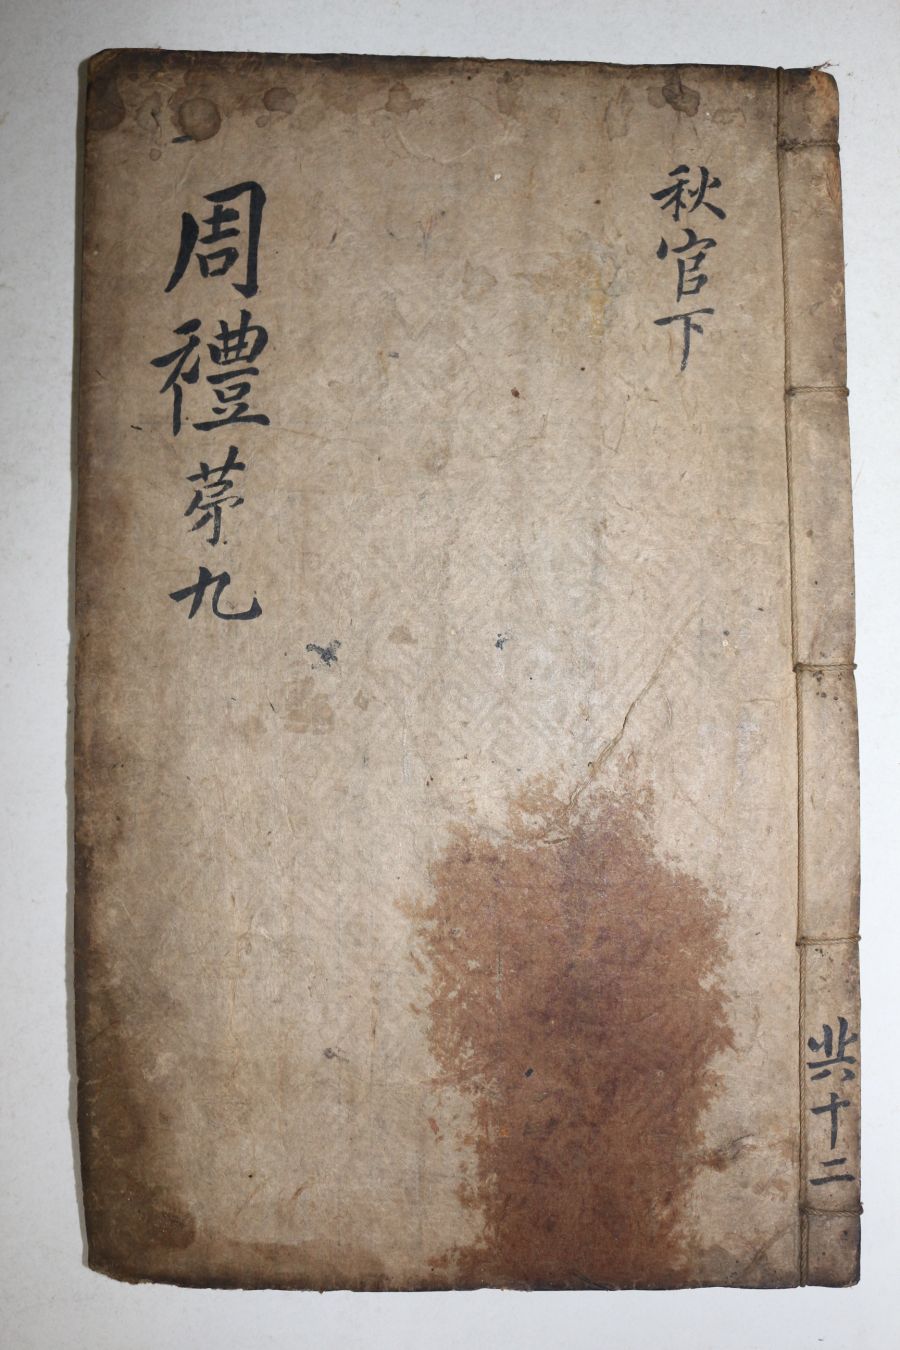 秋官下
周禮苐九
共十二